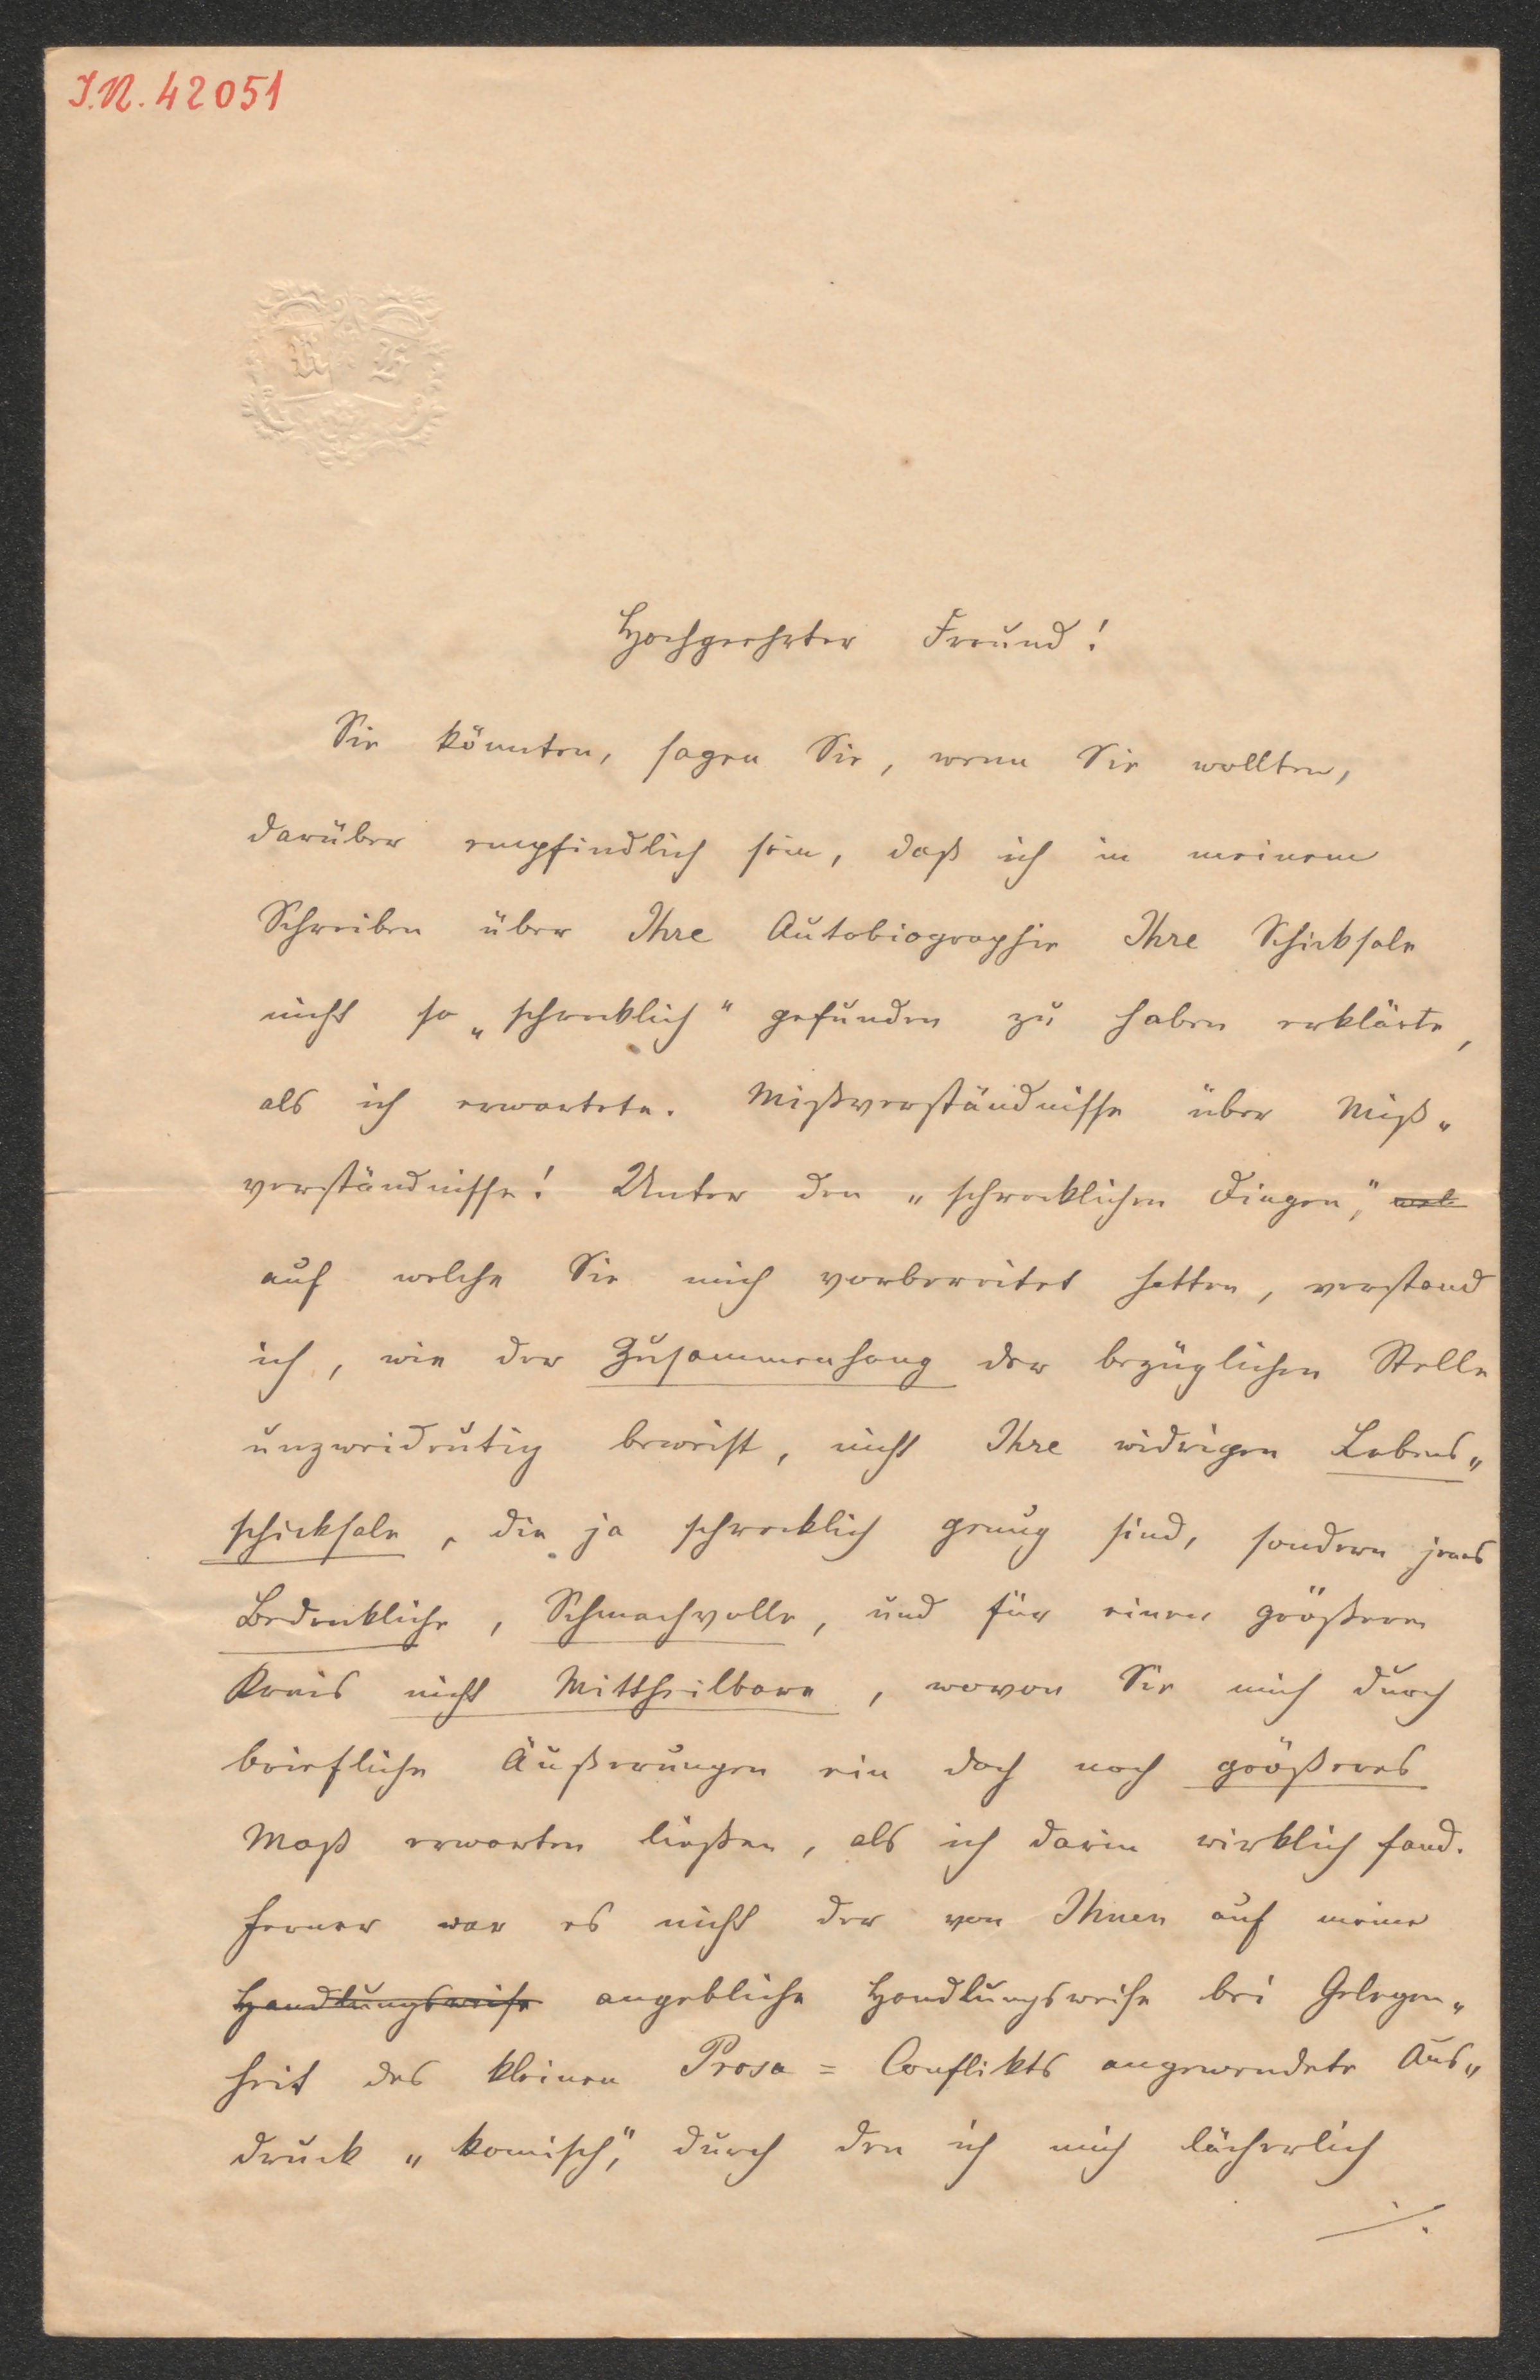 I.N. 42051
Hochgeehrter Freund!
Sie könnten, sagen Sie, wenn Sie wollten,
darüber empfindlich sein, daß ich in meinem
Schreiben über Ihre Autobiographie Ihre Schicksale
nicht so „schrecklich“ gefunden zu haben erklärte,
als ich erwartete. Mißverständnisse über Miß„
verständnisse! Unter den „schrecklichen Dingen“, wel
auf welche Sie mich vorbereitet hatten, verstand
ich, wie der Zusammenhang der bezüglichen Stelle
unzweideutig beweist, nicht Ihre widrigen Lebens„
schicksale, die ja schrecklich genug sind, sondern jenes
Bedenkliche, Schmachvolle, und für einen größeren
Kreis nicht Mittheilbare, wovon Sie mich durch
briefliche Äußerungen ein doch noch größeres
Maß erwarten ließen, als ich darin wirklich fand.
Ferner war es nicht der von Ihnen auf meine
Handlungsweise angebliche Handlungsweise bei Gelegen„
heit des kleinen Prosa = Conflikts angewendete Aus„
druck „komisch“, durch den ich mich lächerlich
./.